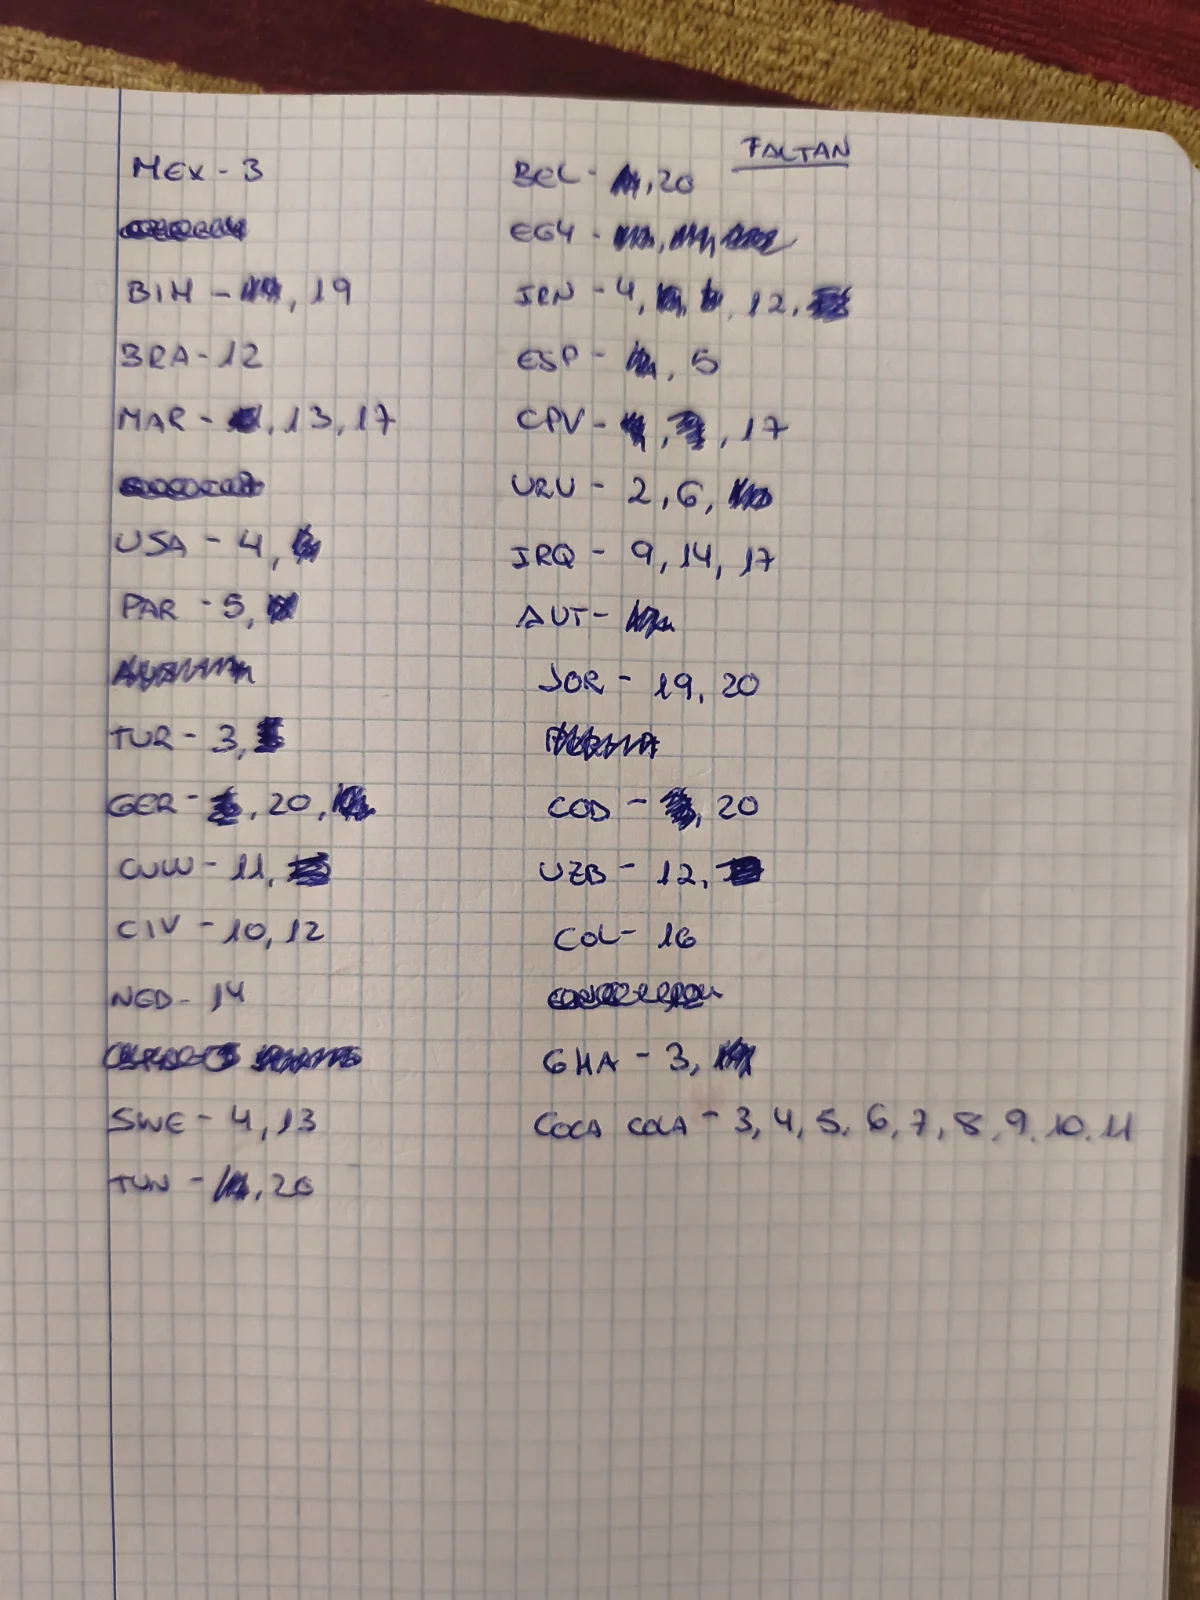 FALTAN
MEX - 3
BIH - , 19
BRA - 12
MAR - , 13, 17
USA - 4,
PAR - 5,
TUR - 3,
GER - , 20,
CUW - 11,
CIV - 10, 12
NED - 14
SWE - 4, 13
TUN - , 20
BEL - , 20
EGY -
IRN - 4, , 12,
ESP - , 5
CPV - , , 17
URU - 2, 6,
IRQ - 9, 14, 17
AUT -
JOR - 19, 20
COD - , 20
UZB - 12,
COL - 16
GHA - 3,
COCA COLA - 3, 4, 5, 6, 7, 8, 9, 10, 11